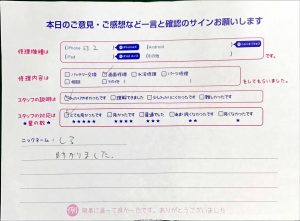 本日のご意見・ご感想など一言と確認のサインお願いします
修理機種は
iPhone SE 2
Android
iPad
その他
です。
修理内容は
バッテリー交換
画面修理
水没修理
パーツ修理
その他
をしてもらいました。
スタッフの説明は
わかりやすかった
理解できました
難しかった
スタッフの対応は
★星の数★
とても良かった
良かった
普通でした
良くなかった
★★★★★
★★★★
★★★
★★
★
ニックネーム：しろ
助かりました。
ありがとうございました